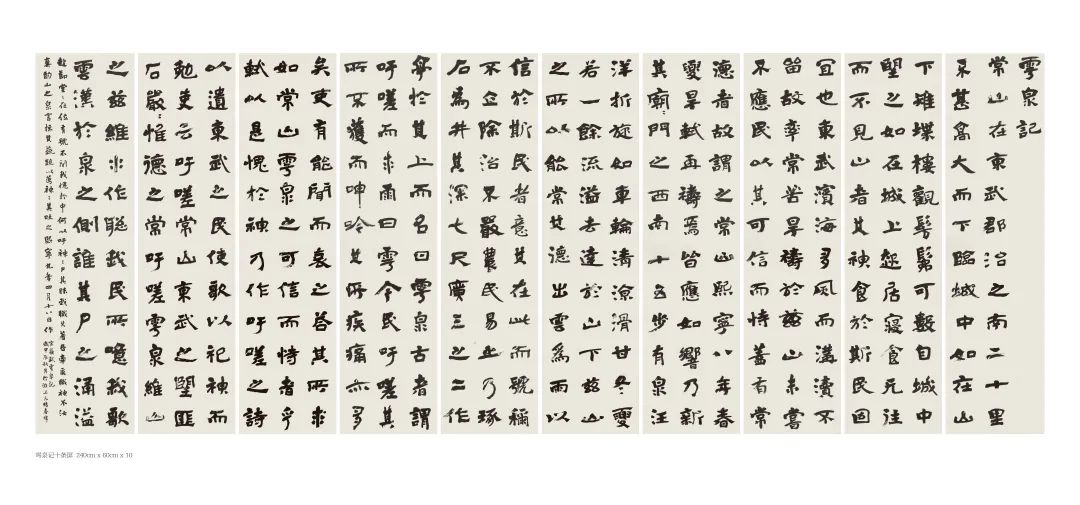 雩泉記
常山在東武郡治之南二十里
不甚高大而下臨城中如在山
下雉堞樓觀髣髴可數自城中
望之如在城上起居寢食无往
而不見山者其神食於斯民固
宜也東武濱海多風而溝瀆不
留故率常苦旱禱於茲山未嘗
不應民以其可信而恃蓋有常
德者故謂之常山熙寧八年春
夏旱軾再禱焉皆應如響乃新
其廟:門之西南十五步有泉汪
洋折旋如車輪清涼滑甘冬夏
若一餘流溢去達於山下茲山
之所以能常其德出雲為雨以
信於斯民者意其在此而號稱
不立除治不嚴農民易之乃琢
石為井其深七尺廣三之二作
亭於其上而名曰雩泉古者謂
吁嗟而求雨曰雩今民吁嗟其
所不獲而呻吟其所疾痛亦多
矣吏有能聞而哀之答其所求
如常山雩泉之可信而恃者乎
軾以是愧於神乃作吁嗟之詩
以遺東武之民使歌以祀神而
勉吏云吁嗟常山東武之望匪
石巖:惟德之常吁嗟雩泉維山
之滋維水作聰我民所噫我歌
雲漢於泉之側誰其尸之涌溢
堂:在位有號不聞我愧於中何以吁神:尸其昧我職其著各率爾職神不汝
棄酌山之泉言採其蔌跪以薦神:其吐之熙寧九年四月十八日作
宋蘇軾雩泉記
雩泉记十条屏 240cm x 60cm x 10